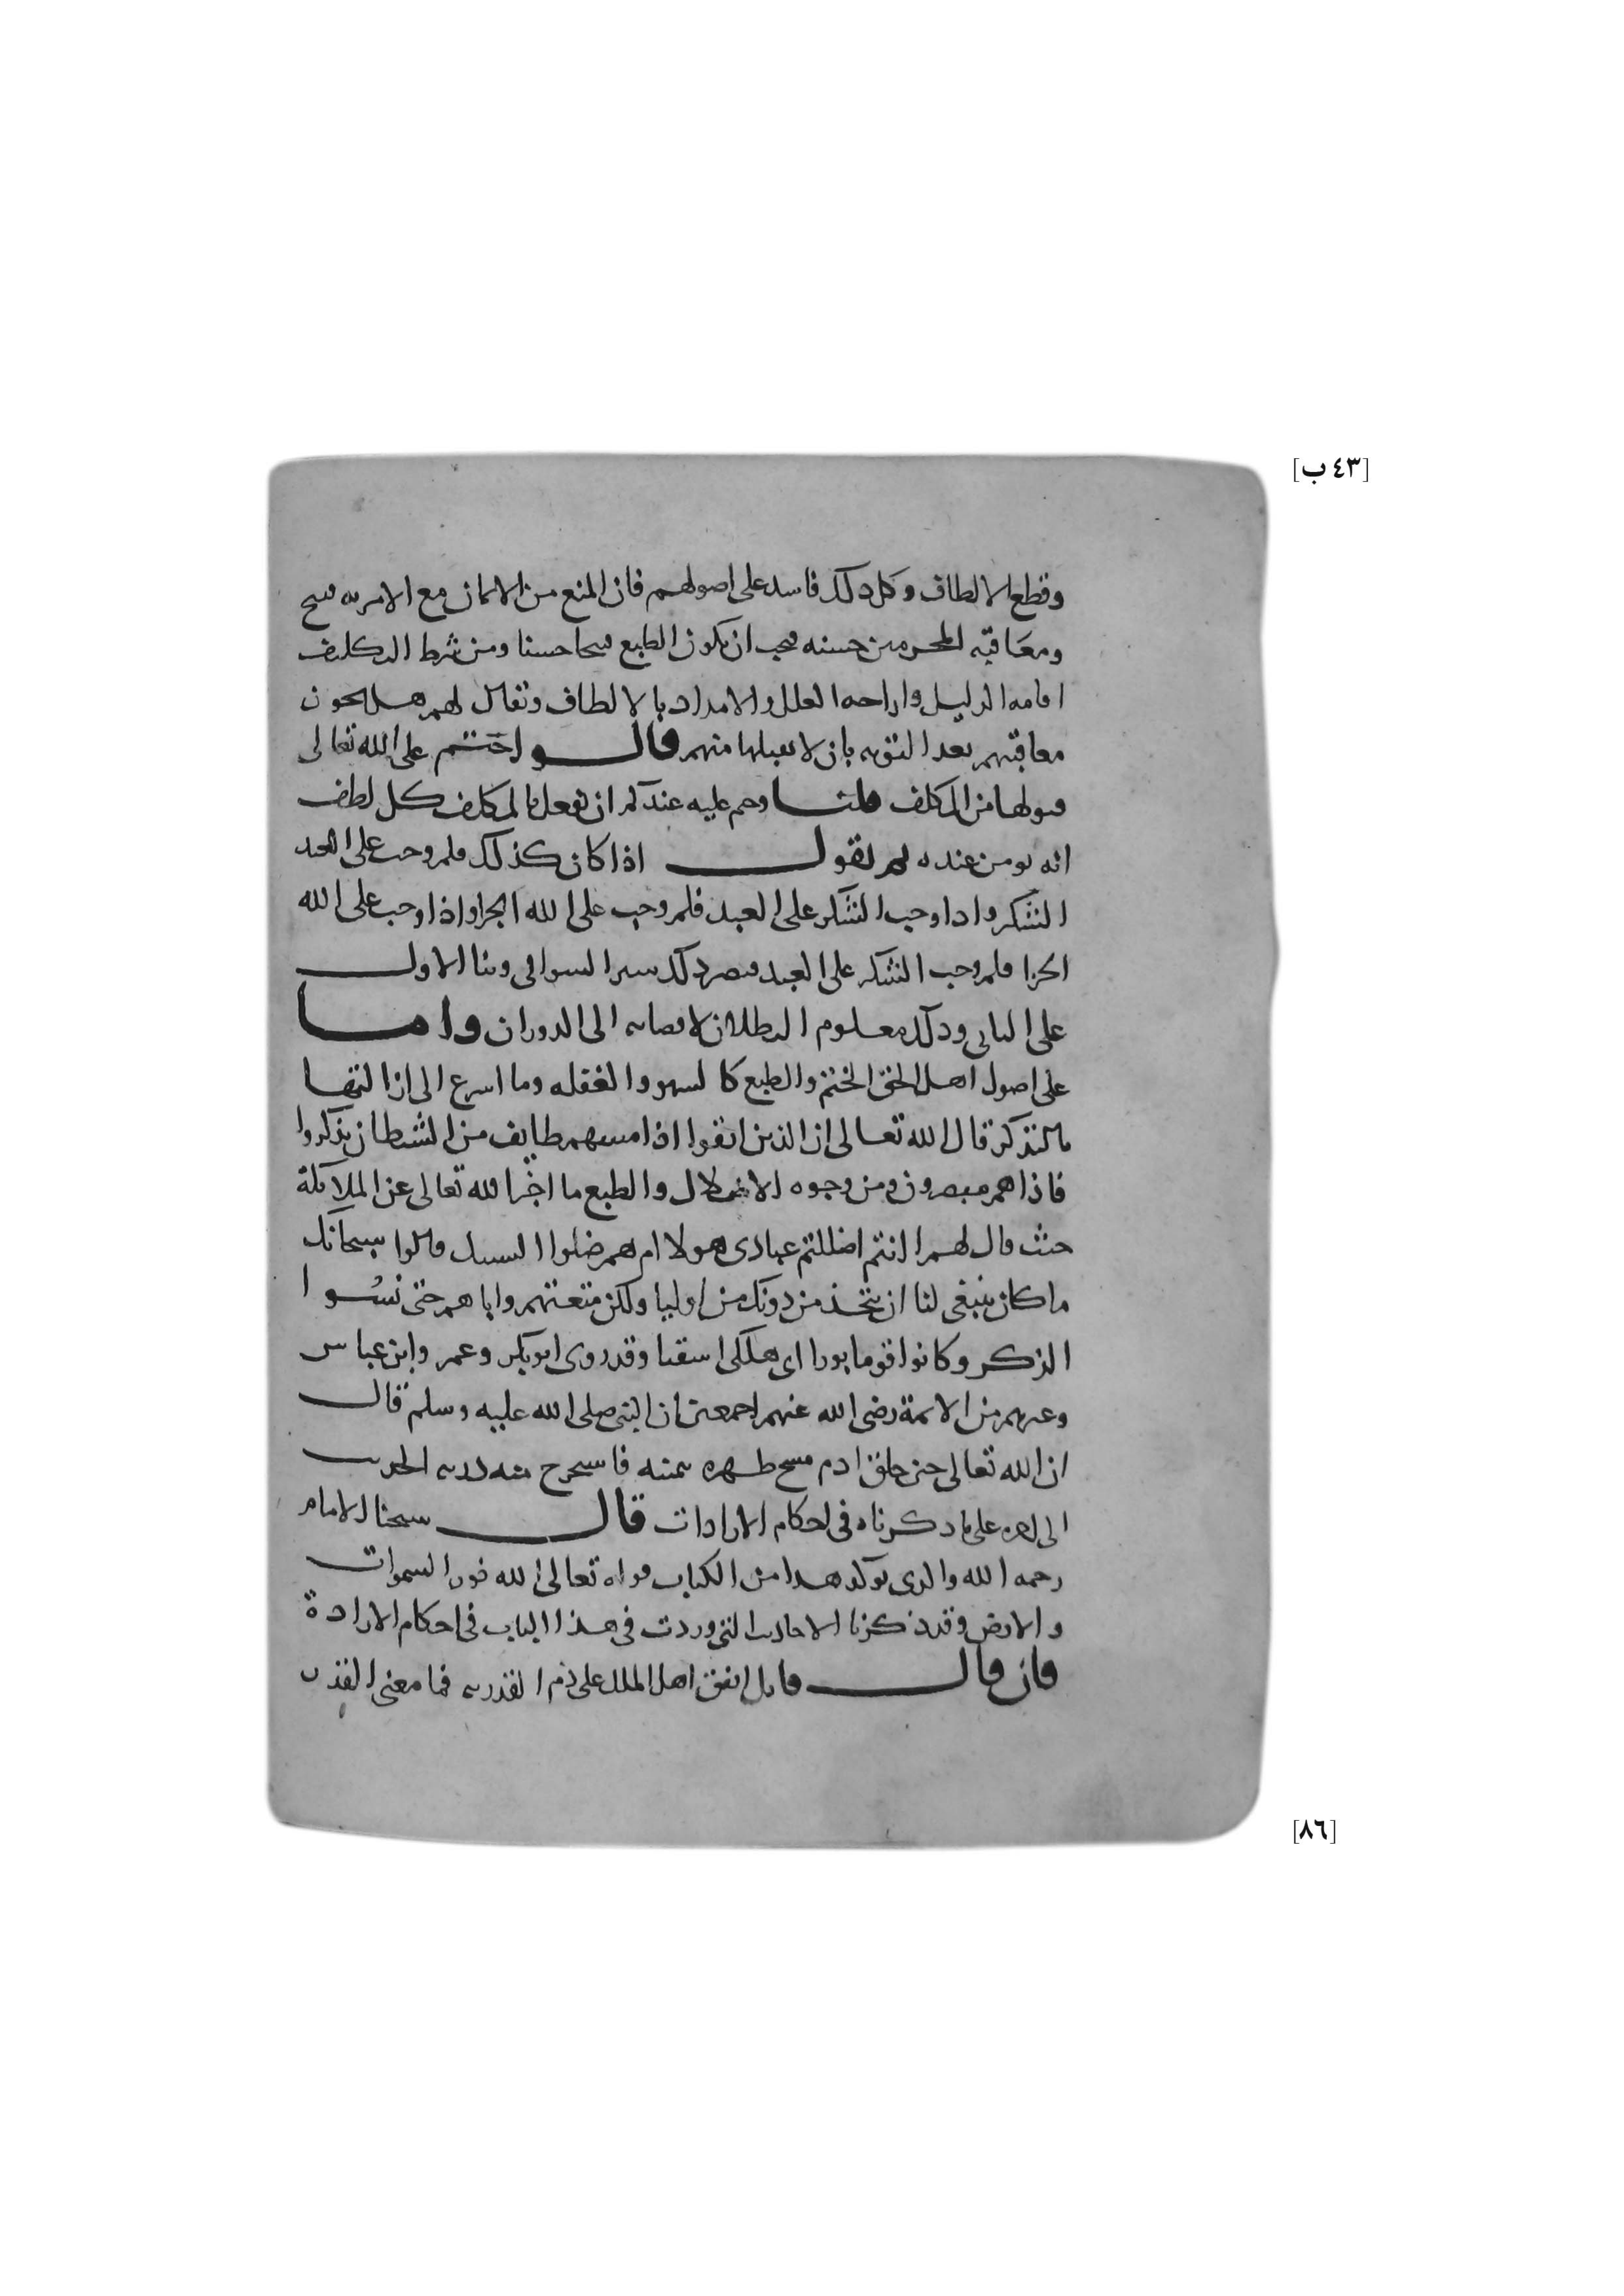 [٤٣ ب]
وقطع الالطاف وكل ذلك فاسد على اصولهم فان المنع من الايمان مع الامر به قبيح
ومعاقبة المحرمين حسنه فيجب ان يكون الطبع قبيحا حسنا ومن شرط التكليف
اقامه الدليل وازاحه العلل والامداد بالالطاف وتقال لهم هل
معاقبتهم بعد التوبه بان لا يقبلها منهم قالوا حتم على الله تعالى
قبولها من المكلف قلنا وحتم عليه عندكم ان يفعل بالمكلف كل لطف
انه يومن عنده ثم نقول اذا كان كذلك فلم وجب على العبد
الشكر واذا وجب الشكر على العبد فلم وجب على الله الجزا واذا وجب على الله
الجزا فلم وجب الشكر على العبد الاول
على الثاني وذلك معلوم البطلان لافضايه الى الدوران واما
على اصول اهل الحق الختم والطبع كالسهو والغفله وما اسرع الى ازالتها
بالتذكرة قال الله تعالى ان الذين اتقوا اذا مسهم طايف من الشيطان تذكروا
فاذا هم مبصرون ومن وجوه الاضلال والطبع ما اخبر الله تعالى عن الملايكة
حيث قال لهم اانتم اضللتم عبادى هولا ام هم ضلوا السبيل قالوا سبحانك
ما كان ينبغى لنا ان نتخذ من دونك من اوليا ولكن متعتهم واباهم حتى نسوا
الذكر وكانوا قوما بورا اى هلكى اشقيا وقد روى ابو بكر وعمر وابن عباس
وغيرهم من الائمة رضى الله عنهم اجمعين ان النبى صلى الله عليه وسلم قال
ان الله تعالى حين خلق ادم مسح ظهره بيمينه فاستخرج منه ذريه الحديث
الى اخره على ما ذكرناه فى احكام الارادات قال شيخنا الامام
رحمه الله والذى يوكد هذا من الكتاب قوله تعالى الله نور السموات
والارض وقد ذكرنا الاحاديث التى وردت فى هذا الباب فى احكام الارادة
فان قال قايل اتفق اهل الملل على ذم القدريه فما معنى القدر
[٨٦]